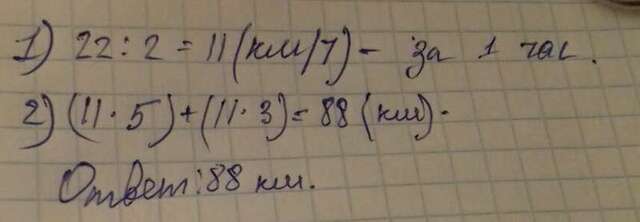 1) 22 : 2 = 11 (км/ч) - за 1 час.
2) (11 · 5) + (11 · 3) = 88 (км).
Ответ: 88 км.